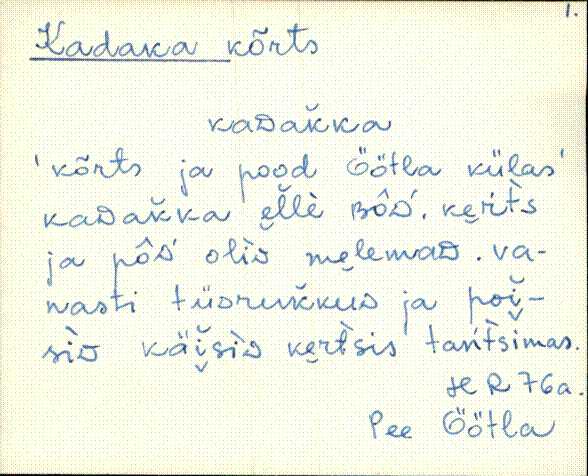 1.
Kadaka kõrts
kaᴅak̆ka
'kõrts ja pood Öötla külas'
kaᴅak̆ka ȩl̆lè ʙôᴅ́. kȩŕt̀s
ja pôᴅ́ oliᴅ mȩlemaᴅ. va-
nasti tüᴅruk̆kuᴅ ja poĭ̯-
siᴅ käĭ̯siᴅ kȩrt̀sis tańt̀simas.
H R 76a.
Pee Öötla